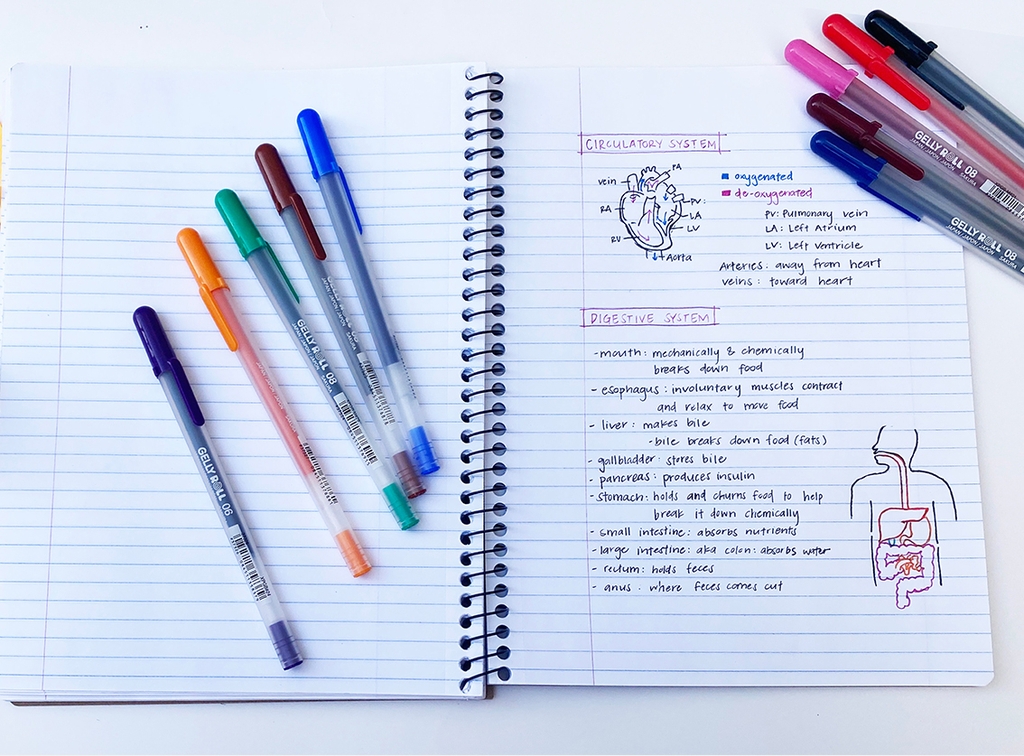 CIRCULATORY SYSTEM
vein
PA
RA
PV:
LA
LV
RV
Aorta
oxygenated
de-oxygenated
PV: Pulmonary vein
LA: Left Atrium
LV: Left Ventricle
Arteries: away from heart
veins: toward heart
DIGESTIVE SYSTEM
-mouth: mechanically & chemically
breaks down food
- esophagus: involuntary muscles contract
and relax to move food
- liver: makes bile
-bile breaks down food (fats)
- gallbladder: stores bile
- pancreas: produces insulin
-stomach: holds and churns food to help
break it down chemically
- small intestine: absorbs nutrients
- large intestine: aka colon: absorbs water
- rectum: holds feces
- anus: where feces comes out
GELLY ROLL 06
JAPAN/JAPON/JAPON SAKURA
GELLY ROLL 08
JAPAN/JAPON/JAPON SAKURA
GELLY ROLL 08
JAPAN/JAPON/JAPON SAKURA
GELLY ROLL 08
JAPAN/JAPON/JAPON SAKURA